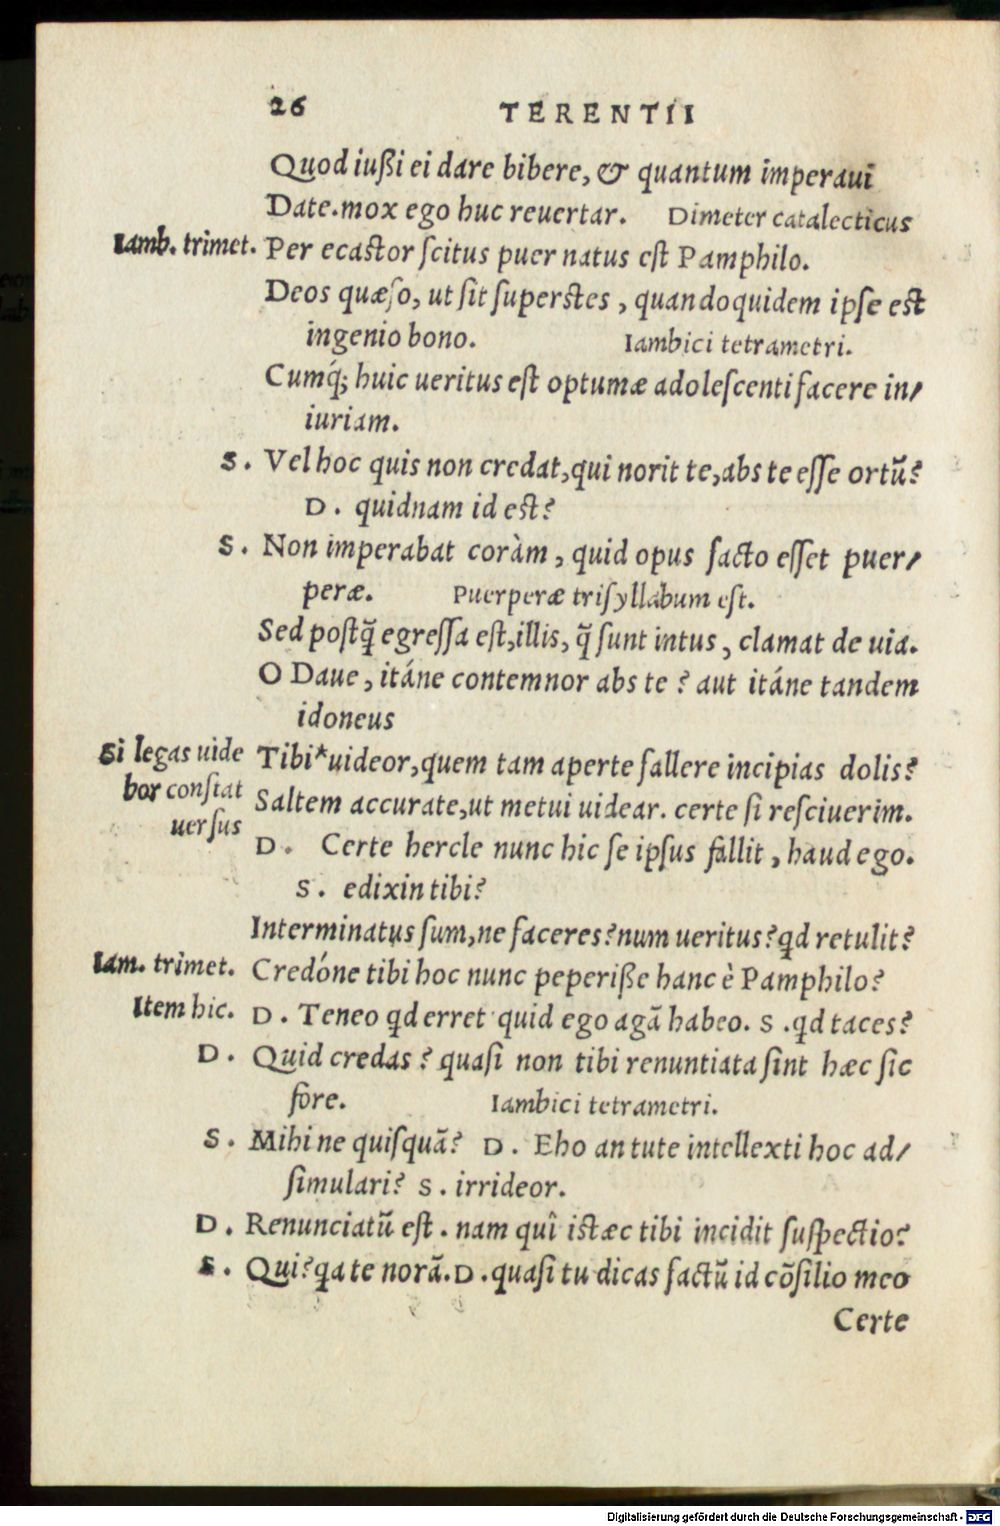 26 TERENTII
Quod iußi ei dare bibere, & quantum imperaui
Date. mox ego huc reuertar. Dimeter catalecticus
Iamb. trimet. Per ecastor ſcitus puer natus eſt Pamphilo.
Deos quæſo, ut ſit ſuperstes, quandoquidem ipſe est
ingenio bono. Iambici tetrametri.
Cumq́; huic ueritus eſt optumæ adoleſcenti facere in/
iuriam.
S. Vel hoc quis non credat, qui norit te, abs te eſſe ortũ?
D. quidnam id est?
S. Non imperabat coràm, quid opus facto eſſet puer/
peræ. Puerperæ triſyllabum eſt.
Sed poſtq̃ egreſſa eſt, illis, q̃ ſunt intus, clamat de uia.
O Daue, itáne contemnor abs te? aut itáne tandem
idoneus
Si legas uide
Tibi*uideor, quem tam aperte fallere incipias dolis?
bor conſtat
Saltem accurate, ut metui uidear. certe ſi reſciuerim.
uerſus
D. Certe hercle nunc hic ſe ipſus fallit, haud ego.
S. edixin tibi?
Interminatus ſum, ne faceres? num ueritus? qd retulit?
Iam. trimet. Credóne tibi hoc nunc peperiße hanc è Pamphilo?
Item hic. D. Teneo qd erret quid ego agã habeo. S. qd taces?
D. Quid credas? quaſi non tibi renuntiata ſint hæc ſic
fore. Iambici tetrametri.
S. Mihi ne quiſquã? D. Eho an tute intellexti hoc ad/
ſimulari? S. irrideor.
D. Renunciatũ eſt. nam quî istæc tibi incidit ſuſpectio?
S. Qui? qa te norã. D. quaſi tu dicas factũ id cõſilio meo
Certe
Digitalisierung gefördert durch die Deutsche Forschungsgemeinschaft - DFG